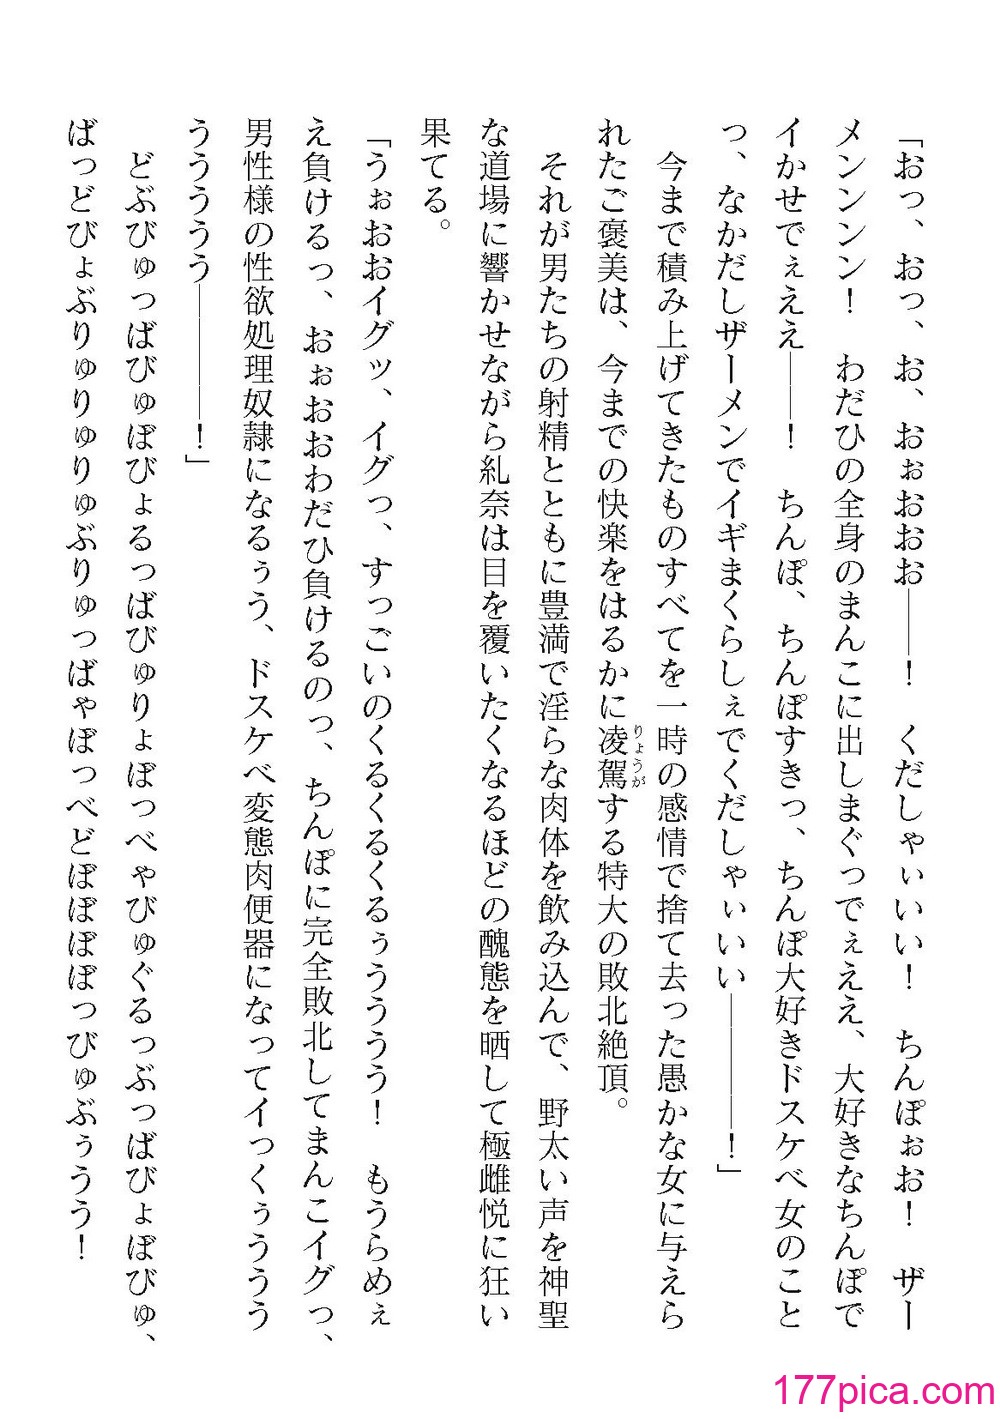 「おっ、おっ、お、おぉおおお――！　くだしゃぃいい！　ちんぽぉお！　ザー
メンンンン！　わだひの全身のまんこに出しまぐっでぇええ、大好きなちんぽで
イかせでぇええ――！　ちんぽ、ちんぽすきっ、ちんぽ大好きドスケベ女のこと
っ、なかだしザーメンでイギまくらしぇでくだしゃぃいい――――！」
　今まで積み上げてきたものすべてを一時の感情で捨て去った愚かな女に与えら
れたご褒美は、今までの快楽をはるかに凌駕りょうがする特大の敗北絶頂。
　それが男たちの射精とともに豊満で淫らな肉体を飲み込んで、野太い声を神聖
な道場に響かせながら糺奈は目を覆いたくなるほどの醜態を晒して極雌悦に狂い
果てる。
「うぉおおイグッ、イグっ、すっごいのくるくるくるぅうううう！　もうらめぇ
え負けるっ、おぉおおわだひ負けるのっ、ちんぽに完全敗北してまんこイグっ、
男性様の性欲処理奴隷になるぅう、ドスケベ変態肉便器になってイっくぅううう
ううううう――――！」
　どぶびゅっばびゅぼびょるっばびゅりょぼっべゃびゅぐるっぶっばびょぼびゅ、
ばっどびょぶりゅりゅりゅぶりゅっばゃぼっべどぼぼぼぼっびゅぶぅうう！
177pica.com